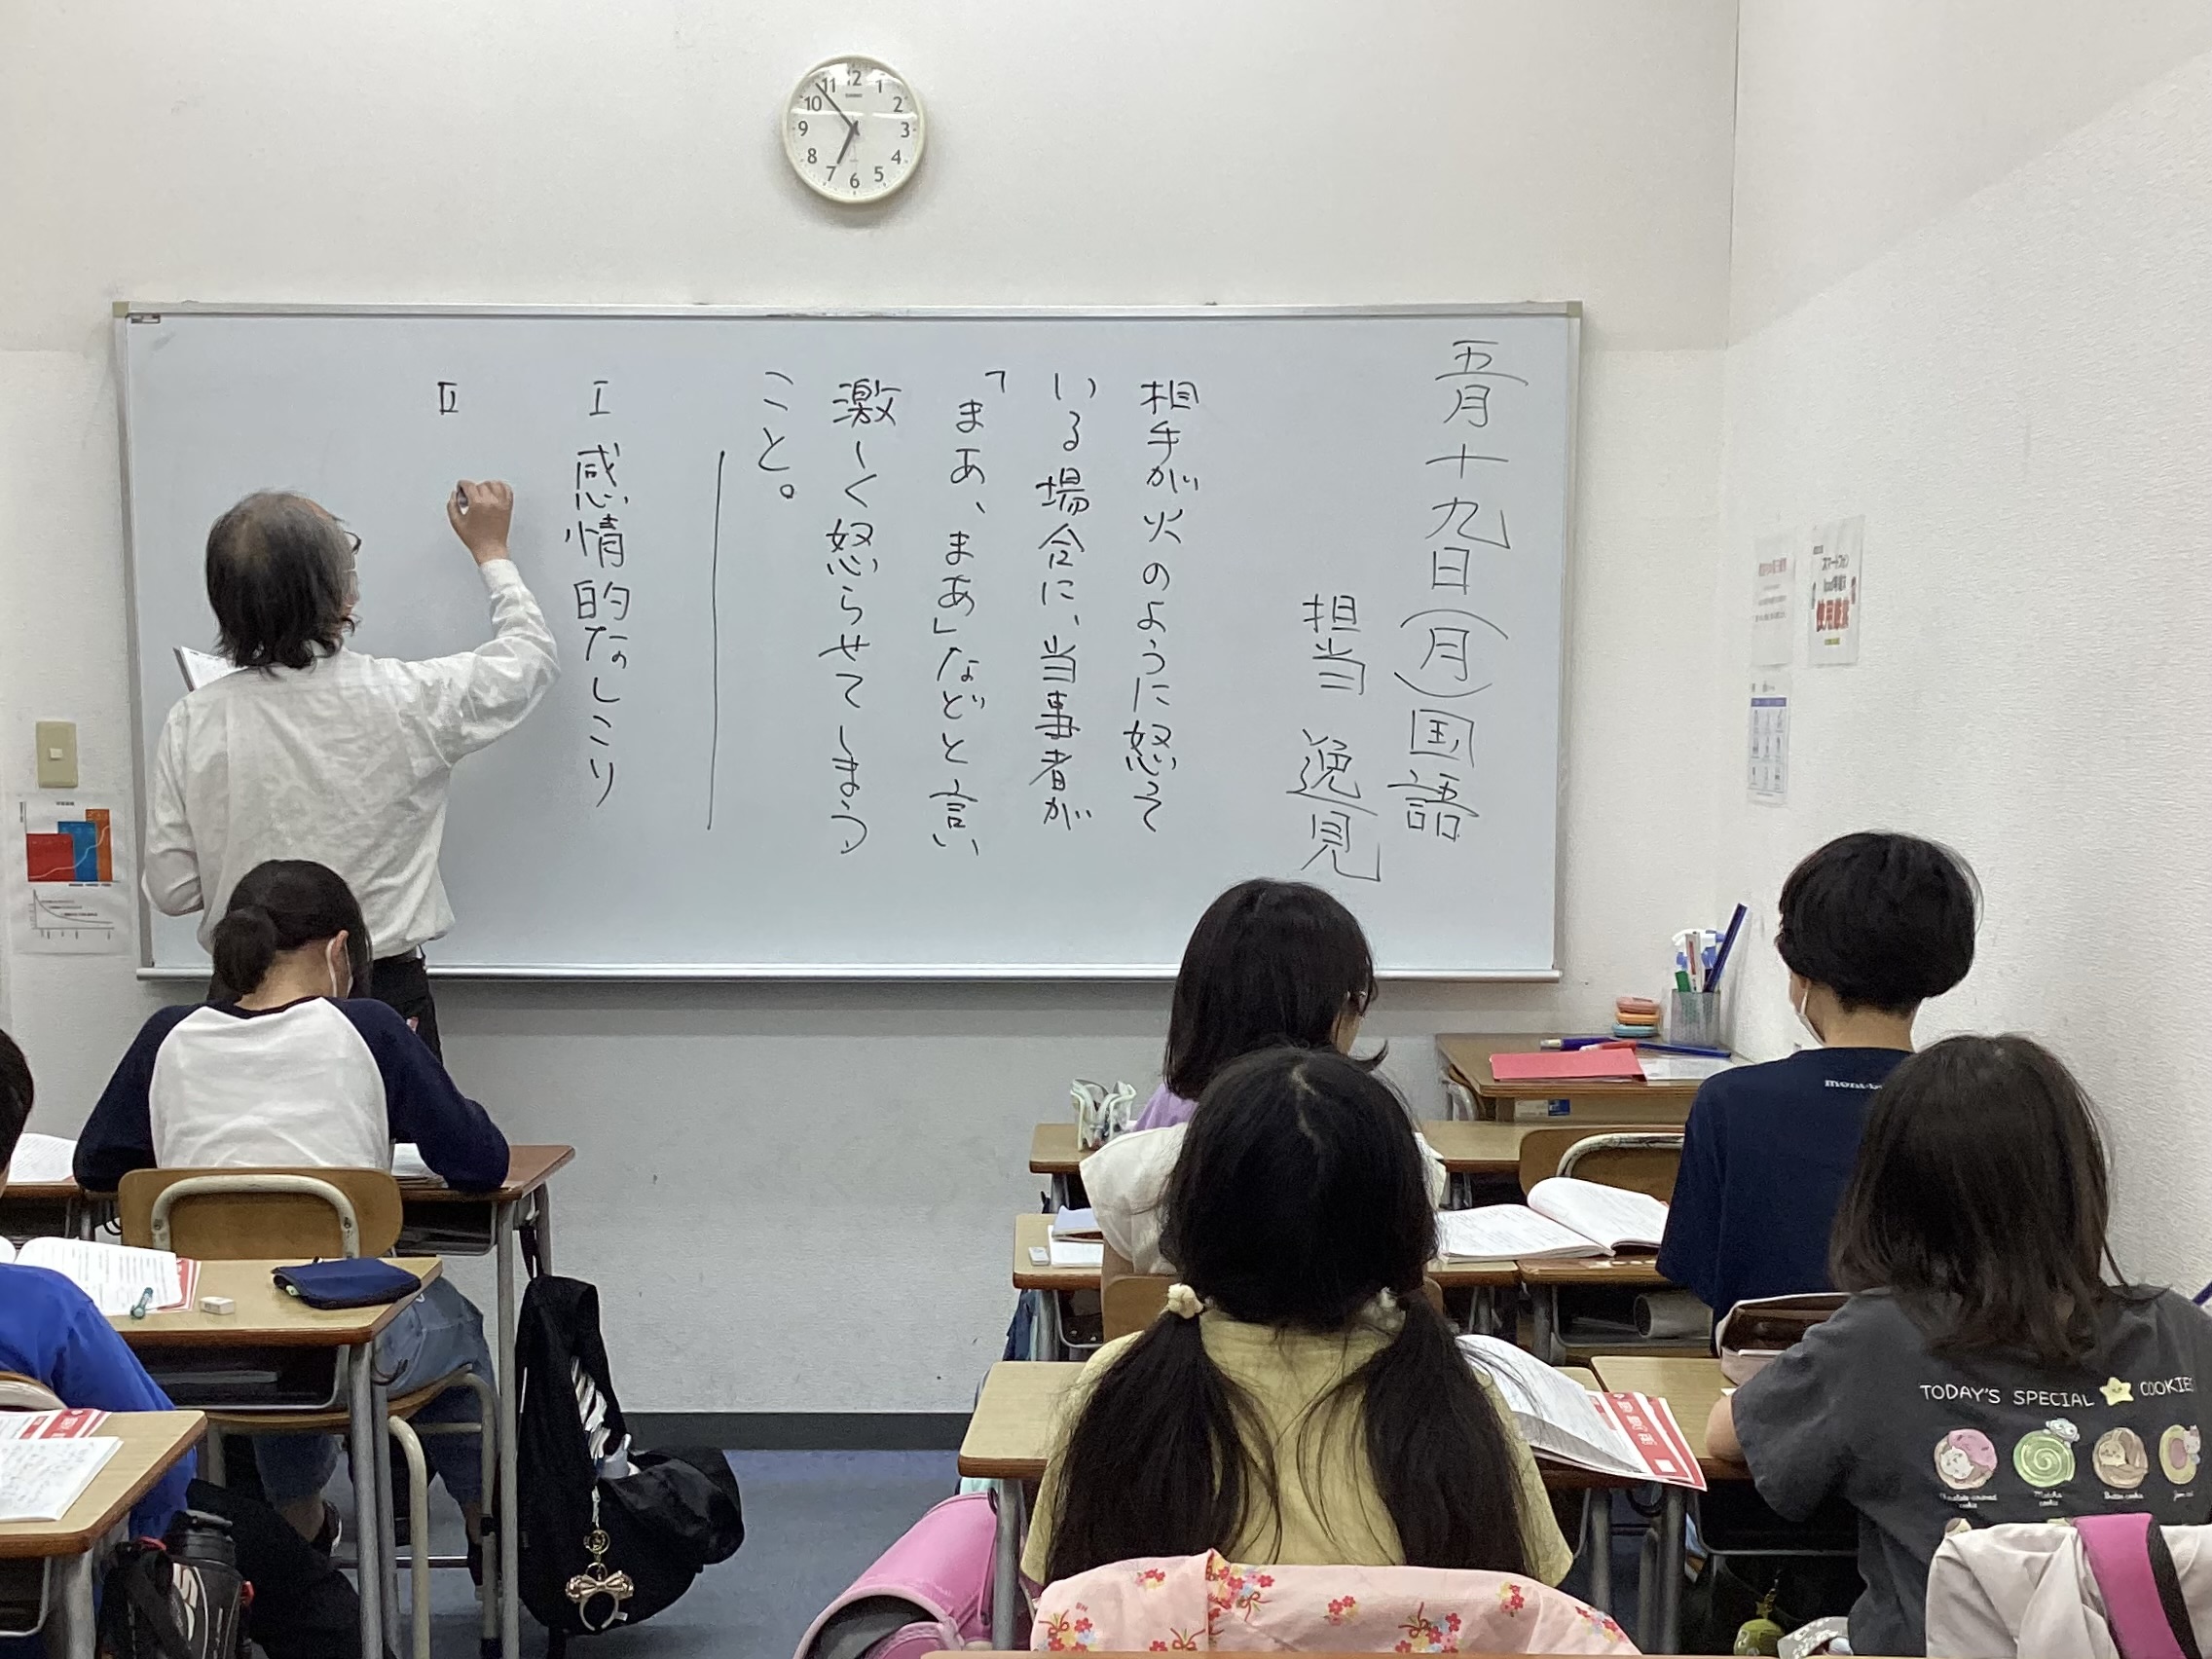 五月十九日(月)国語
担当 逸見
相手が火のように怒って
いる場合に、当事者が
「まあ、まあ」などと言い
激しく怒らせてしまう
こと。
I 感情的なしこり
II
11 12 1
10 2
9 3
8 4
7 6 5
TODAY'S SPECIAL COOKIE